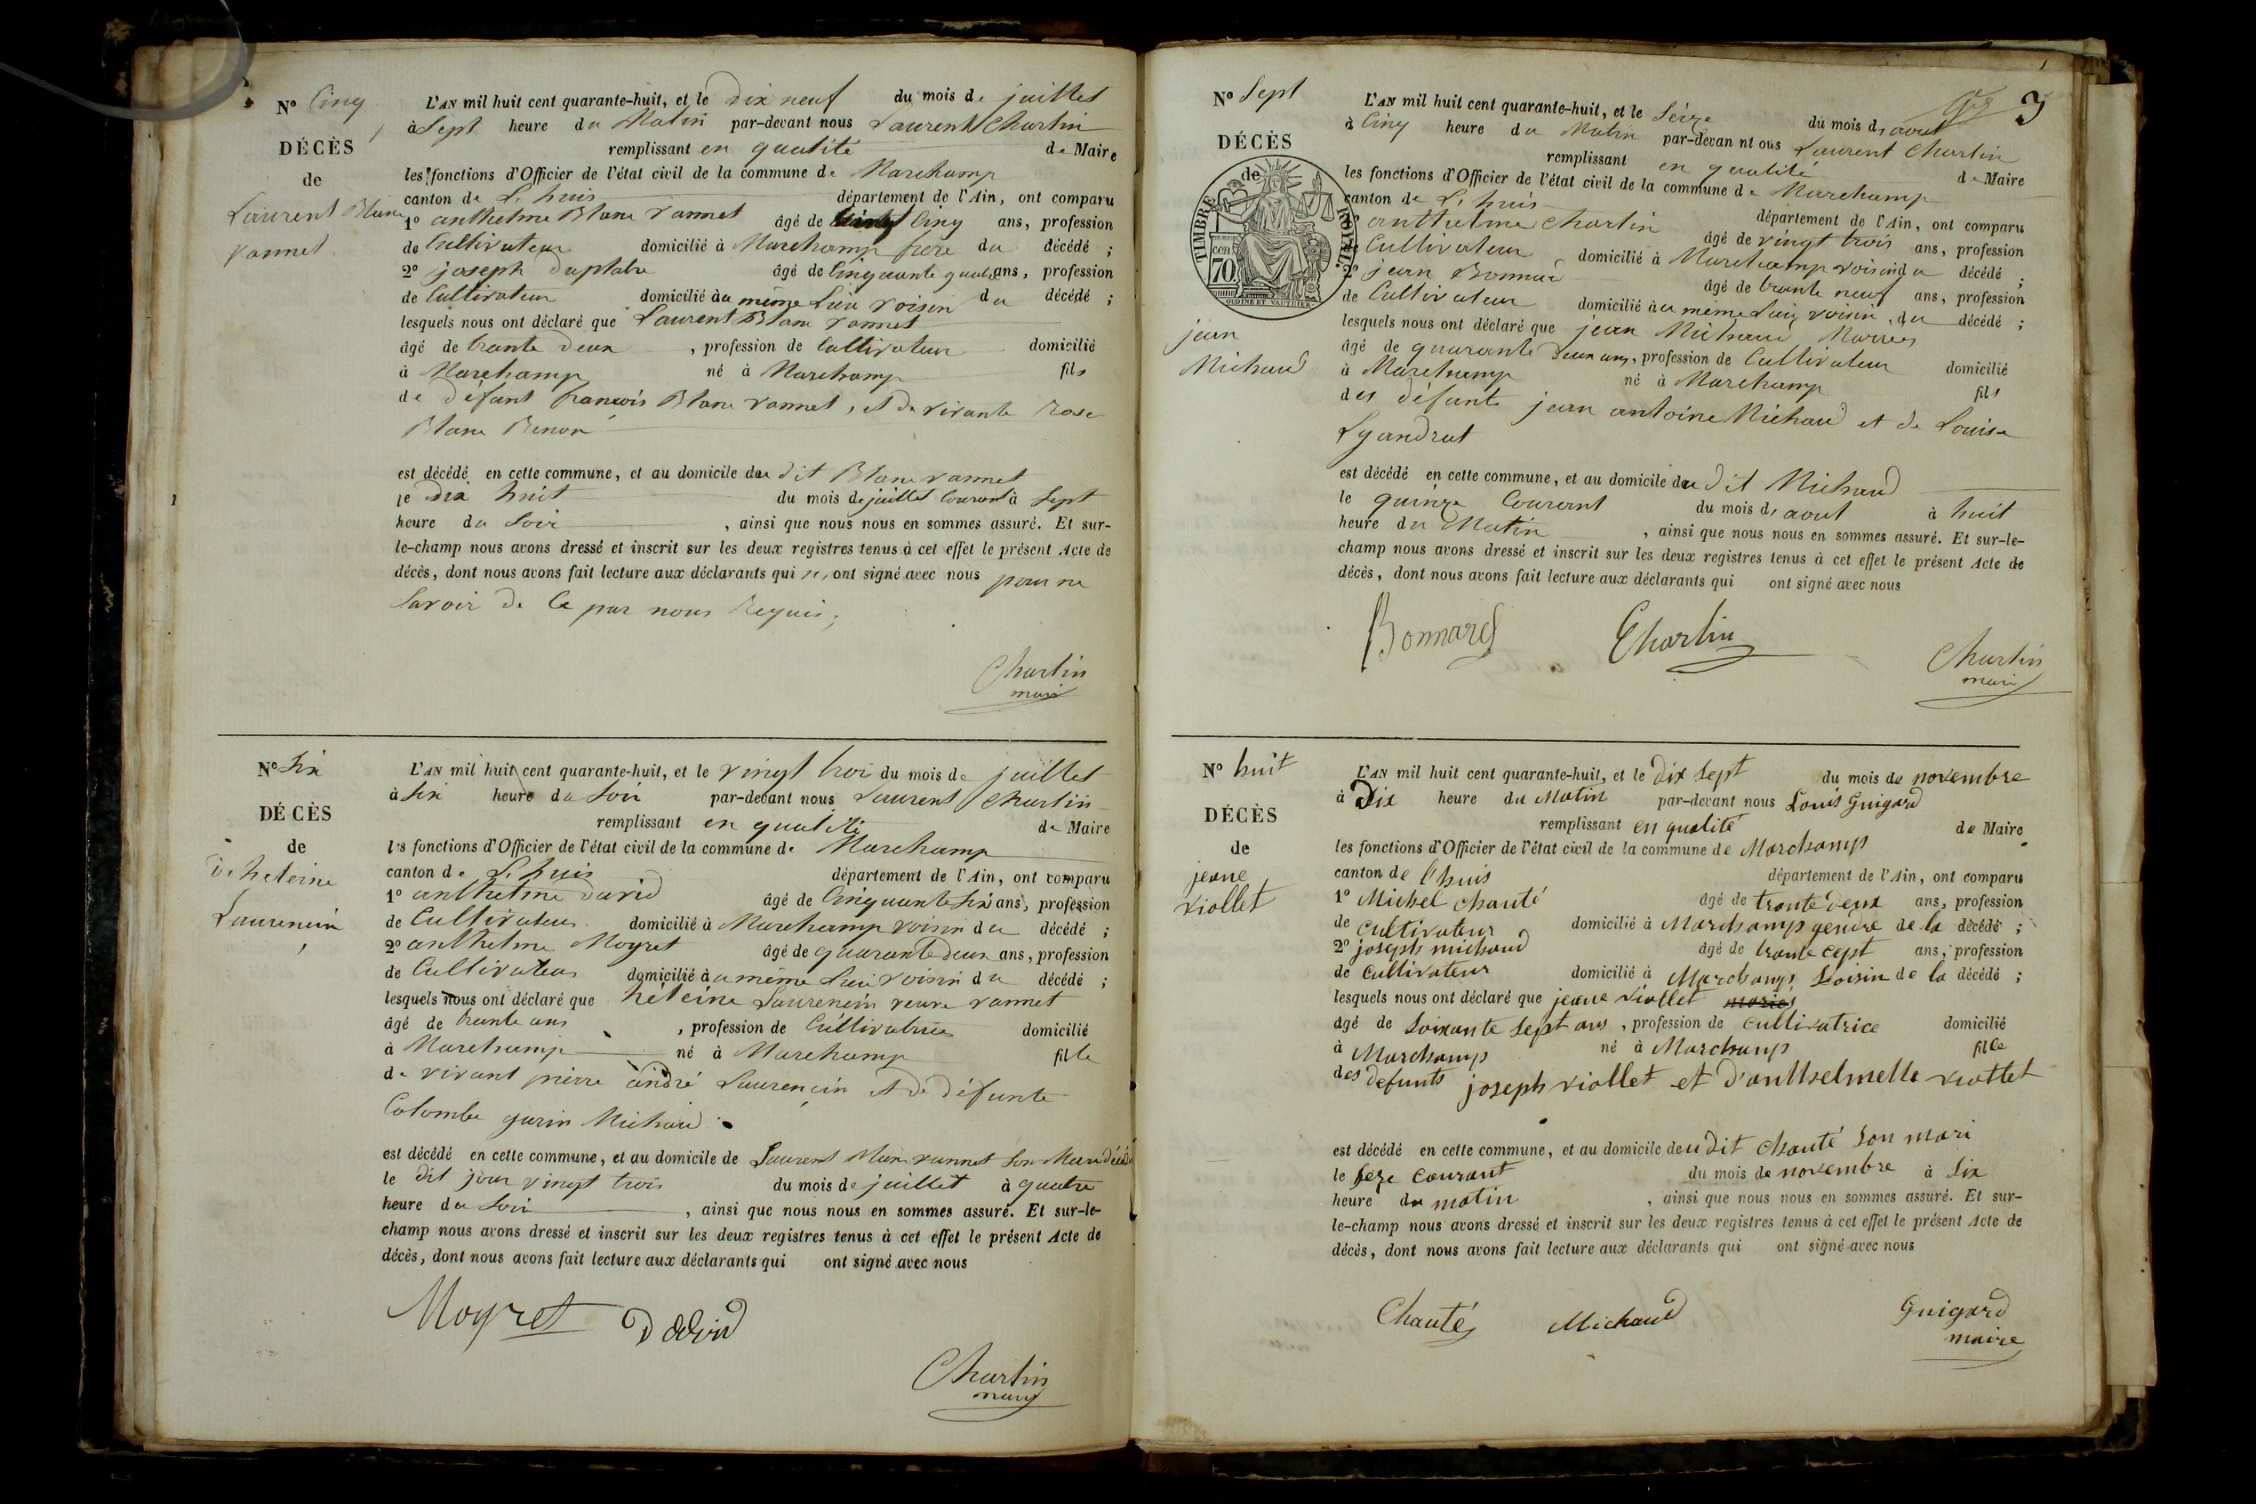 N° Cinq
DÉCÈS
de
Laurent Blanc
vannet
L'AN mil huit cent quarante-huit, et le dix neuf du mois de juillet
à Sept heure du Matin par-devant nous Laurent Charlin
remplissant en qualité de Maire
les fonctions d'Officier de l'état civil de la commune de Marchamp
canton de L'huis département de l'Ain, ont comparu
1° anthelme Blanc vannet âgé de Cinq ans, profession
de Cultivateur domicilié à Marchamp frere du décédé ;
2° joseph âgé de Cinquante quatre ans, profession
de Cultivateur domicilié au même Lieu voisin du décédé ;
lesquels nous ont déclaré que Laurent Blanc vannet
âgé de trante deux , profession de Cultivateur domicilié
à Marchamp né à Marchamp fils
de défunt francois Blanc vannet, et de vivante Rose
Blanc Benon
est décédé en cette commune, et au domicile du dit Blanc vannet
le dix huit du mois de juillet Courant à Sept
heure du Soir , ainsi que nous nous en sommes assuré. Et sur-
le-champ nous avons dressé et inscrit sur les deux registres tenus à cet effet le présent Acte de
décès, dont nous avons fait lecture aux déclarants qui n'ont signé avec nous pour ne
Savoir de Ce par nous Requis,
Charlin
maire
N° Six
DÉCÈS
de
heleine
Laurencin
L'AN mil huit cent quarante-huit, et le vingt troi du mois de juillet
à Six heure du Soir par-devant nous Laurent Charlin
remplissant en qualité de Maire
les fonctions d'Officier de l'état civil de la commune de Marchamp
canton de L'huis département de l'Ain, ont comparu
1° anthelme david âgé de Cinquante Six ans, profession
de Cultivateur domicilié à Marchamp voisin du décédé ;
2° anthelme Moyret âgé de quarante deux ans, profession
de Cultivateur domicilié au même Lieu voisin du décédé ;
lesquels nous ont déclaré que héleine Laurencin veuve vannet
âgé de trante ans , profession de Cultivatrice domicilié
à Marchamp né à Marchamp fille
de vivant pierre andré Laurencin et de défunte
Colombe gurin Michaud
est décédé en cette commune, et au domicile de Laurent Blanc vannet Son Mari décédé
le dit jour vingt trois du mois de juillet à quatre
heure du Soir , ainsi que nous nous en sommes assuré. Et sur-le-
champ nous avons dressé et inscrit sur les deux registres tenus à cet effet le présent Acte de
décès, dont nous avons fait lecture aux déclarants qui ont signé avec nous
Moyret David
Charlin
maire
3
N° Sept
DÉCÈS
de
TIMBRE ROYAL
70
jean
Michaud
L'AN mil huit cent quarante-huit, et le Seize du mois d'aout
à Cinq heure du Matin par-devant nous Laurent Charlin
remplissant en qualité de Maire
les fonctions d'Officier de l'état civil de la commune de Marchamp
canton de L'huis département de l'Ain, ont comparu
anthelme Charlin âgé de vingt trois ans, profession
de Cultivateur domicilié à Marchamp voisin du décédé ;
2° jean Bonnard âgé de trante neuf ans, profession
de Cultivateur domicilié au même Lieu voisin, du décédé ;
lesquels nous ont déclaré que jean Michaud Mariés
âgé de quarante deux ans, profession de Cultivateur domicilié
à Marchamp né à Marchamp fils
des défunts jean antoine Michaud et de Louise
Lyandrat
est décédé en cette commune, et au domicile du dit Michaud
le quinze Courant du mois d'aout à huit
heure du Matin , ainsi que nous nous en sommes assuré. Et sur-le-
champ nous avons dressé et inscrit sur les deux registres tenus à cet effet le présent Acte de
décès, dont nous avons fait lecture aux déclarants qui ont signé avec nous
Bonnard Charlin Charlin
maire
N° huit
DÉCÈS
de
jeane
viollet
L'AN mil huit cent quarante-huit, et le dix Sept du mois de novembre
à Dix heure du Matin par-devant nous Louis Guigard
remplissant en qualité de Maire
les fonctions d'Officier de l'état civil de la commune de Marchamp
canton de l'huis département de l'Ain, ont comparu
1° Michel chanté âgé de trante deux ans, profession
de Cultivateur domicilié à Marchamp gendre de la décédé ;
2° joseph michaud âgé de trante cept ans, profession
de cultivateur domicilié à Marchamp voisin de la décédé ;
lesquels nous ont déclaré que jeane viollet mariés
âgé de Soixante Sept ans, profession de cultivatrice domicilié
à Marchamp né à Marchamp fille
des defunts joseph viollet et d'anthelmette viollet
est décédé en cette commune, et au domicile dudit chanté Son mari
le seze courant du mois de novembre à Six
heure du matin , ainsi que nous nous en sommes assuré. Et sur-
le-champ nous avons dressé et inscrit sur les deux registres tenus à cet effet le présent Acte de
décès, dont nous avons fait lecture aux déclarants qui ont signé avec nous
Chanté Michaud Guigard
maire